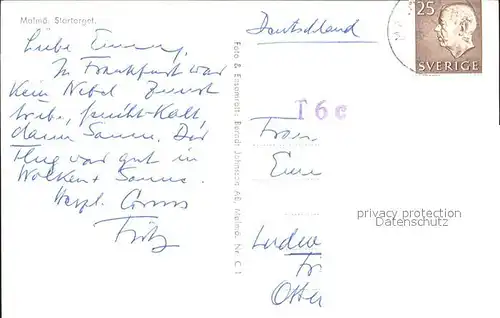 Malmö. Stortorget.
Liebe Emmy,
In Frankfurt war
kein Nebel zuerst
trübe, feucht-kalt,
dann Sonne. Der
Flug war gut in
Wolken + Sonne.
Herzl. Gruss
Fritz
Foto & Ensamrätt: Berndt Johnsson AB, Malmö. Nr C 1
Deutschland
25
SVERIGE
T6c
Frau
privacy protection
Datenschutz